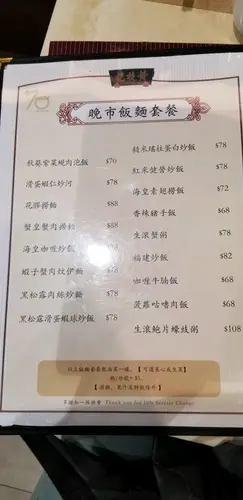 70
晚市飯麵套餐
秋葵紫菜蜆肉泡飯 $70
滑蛋蝦仁炒河 $78
花膠撈麵 $88
蟹皇蟹肉撈麵 $88
海皇咖喱炒飯 $78
蝦子蟹肉炆伊麵 $78
黑松露肉絲炒麵 $78
黑松露滑蛋蝦球炒飯 $78
糙米瑤柱蛋白炒飯 $78
紅米健營炒飯 $78
海皇素翅撈飯 $72
香辣豬手飯 $68
生滾蟹粥 $78
福建炒飯 $82
咖喱牛腩飯 $68
菠蘿咕嚕肉飯 $68
生滾鮑片蠔豉粥 $108
以上飯麵套餐
【可選
不設加一服務費 Thank you for No Service Charge